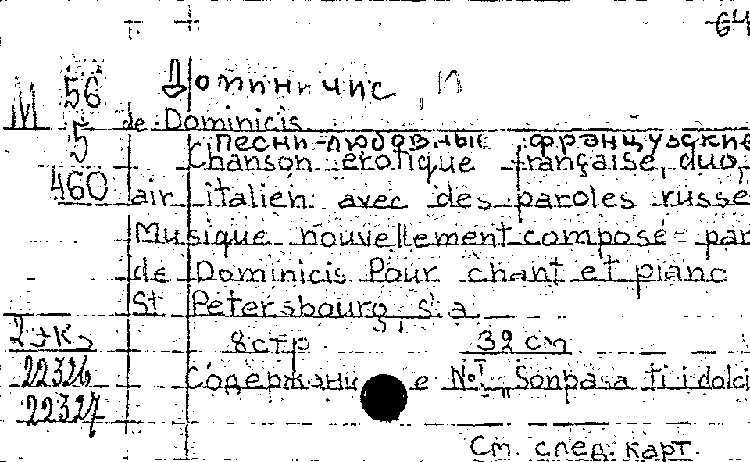 64
М 56 Доминичис, П
de Dominicis
5 песни любовныe французские
Chanson erotique française, duo,
460 air italien avec des paroles russe
Musique nouvellement composé par
de Dominicis Pour chant et piano
St Petersbourg, s.a.
2 эк. 8 стр. 32 см
22326 Содержание №1 „Sonpasa ti i dolci
22327
См. след. карт.